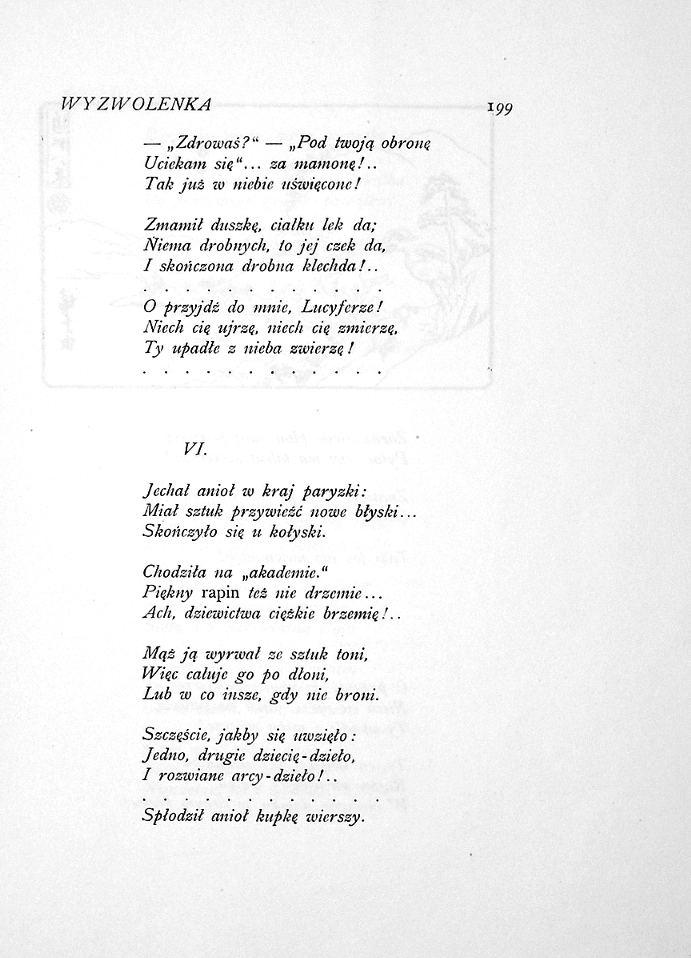 WYZWOLENKA 199
— „Zdrowaś?“ — „Pod twoją obronę
Uciekam się“... za mamonę!..
Tak już w niebie uświęcone!
Zmamił duszkę, ciałku lek da;
Niema drobnych, to jej czek da,
I skończona drobna klechda!..
. . . . . . . . . . . .
O przyjdź do mnie, Lucyferze!
Niech cię ujrzę, niech cię zmierzę,
Ty upadłe z nieba zwierzę!
. . . . . . . . . . . .
VI.
Jechał anioł w kraj paryzki:
Miał sztuk przywieźć nowe błyski...
Skończyło się u kołyski.
Chodziła na „akademie.“
Piękny rapin też nie drzemie...
Ach, dziewictwa ciężkie brzemię!..
Mąż ją wyrwał ze sztuk toni,
Więc całuje go po dłoni,
Lub w co insze, gdy nie broni.
Szczęście, jakby się uwzięło:
Jedno, drugie dziecię-dzieło,
I rozwiane arcy-dzieło!..
. . . . . . . . . . . .
Spłodził anioł kupkę wierszy.